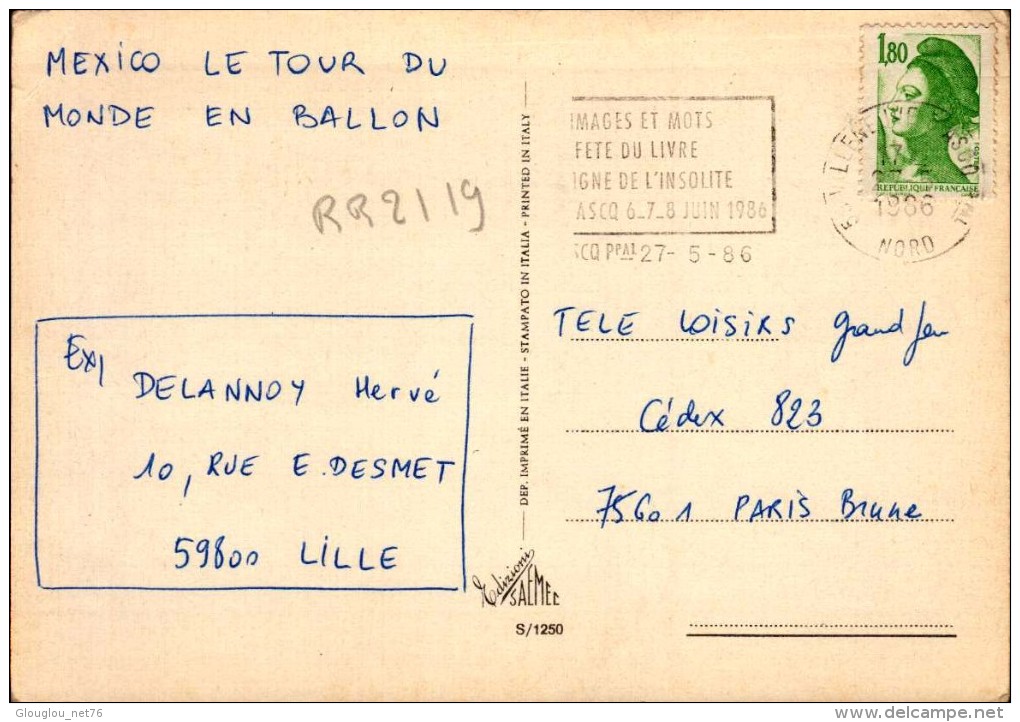 MEXICO LE TOUR DU
MONDE EN BALLON
RR2119
Exp
DELANNOY Hervé
10, RUE E. DESMET
59800 LILLE
DEP. IMPRIMÉ EN ITALIE - STAMPATO IN ITALIA - PRINTED IN ITALY
Edizioni
SAEMEC
S/1250
IMAGES ET MOTS
FETE DU LIVRE
IGNE DE L'INSOLITE
ASCQ 6_7_8 JUIN 1986
SCQ PPAL 27- 5 - 86
1,80
POSTES
REPUBLIQUE FRANCAISE
1986
NORD
TELE LOISIRS grand jeu
Cédex 823
75601 PARIS Brune
Glouglou_net76
www.delcampe.net